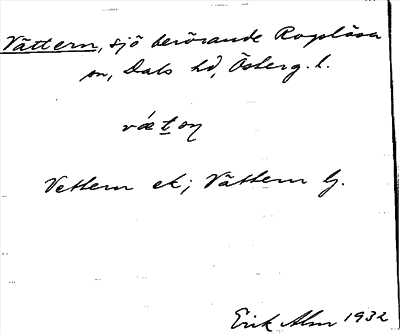 Vättern, sjö berörande Rogslösa
sn, Dals hd, Österg. l.
Vettern ek; Vättern lj.
Erik Alm 1932